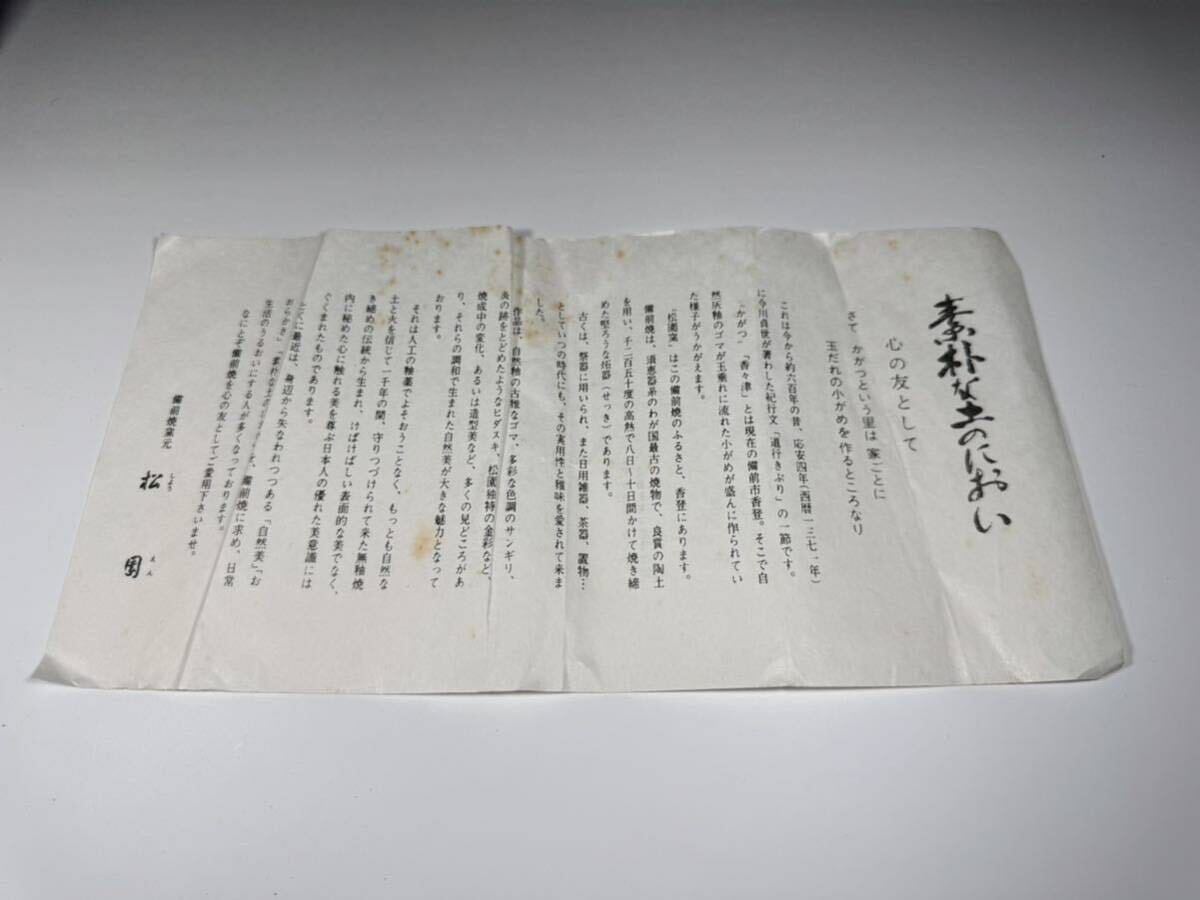 素朴な土のにおい
心の友として
さて、かがつという里は家ごとに
玉だれの小がめを作るところなり
これは今から約六百年の昔、応安四年(西暦一三七一年)
に今川貞世が著わした紀行文「道行きぶり」の一節です。
"かがつ"「香々津」とは現在の備前市香登。そこで自
然灰釉のゴマが玉垂れに流れた小がめが盛んに作られてい
た様子がうかがえます。
"松園窯"はこの備前焼のふるさと、香登にあります。
備前焼は、須恵器系のわが国最古の焼物で、良質の陶土
を用い、千二百五十度の高熱で八日~十日間かけて焼き締
めた堅ろうな炻器(せっき)であります。
古くは、祭器に用いられ、また日用雑器、茶器、置物…
としていつの時代にも、その実用性と雅味を愛されて来ま
した。
作品は、自然釉の古雅なゴマ、多彩な色調のサンギリ、
炎の跡をとどめたようなヒダスキ、松園独特の金彩など、
焼成中の変化、あるいは造型美など、多くの見どころがあ
り、それらの調和で生まれた自然美が大きな魅力となって
おります。
それは人工の釉薬でよそおうことなく、もっとも自然な
土と火を信じて一千年の間、守りつづけられて来た無釉焼
き締めの伝統から生まれ、けばけばしい表面的な美でなく、
内に秘めた心に触れる美を尊ぶ日本人の優れた美意識には
ぐくまれたものであります。
とくに最近は、身辺から失なわれつつある「自然美」「お
おらかさ」「素朴な土の
を、備前焼に求め、日常
生活のうるおいにする人が多くなっております。
なにとぞ備前焼を心の友としてご愛用下さいませ。
備前焼窯元 松園
しょうえん